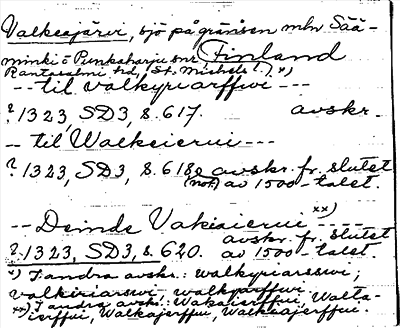 Valkeajärvi, sjö på gränsen mln Sää-
minki o Punkaharju snr (Finland
Rantasalmi hd, St. Michels l.) x)
--- til valkyriarffwi ---
? 1323, SD3, s. 617. avskr.
-- til Walkeierui ---
? 1323, SD3, s. 618 avskr. fr. slutet
(not) av 1500-talet.
--- Deinde Vakiaierui xx) ---
avskr. fr. slutet
? 1323, SD3, s. 620. av 1500-talet.
x) I andra avskr.: walkyriarsswi;
valkiriarswi walkyarffwi
xx) I andra avskr.: Wakaierffui, Walta-
ierffui, Walkajerffui, Walkeajerffui.